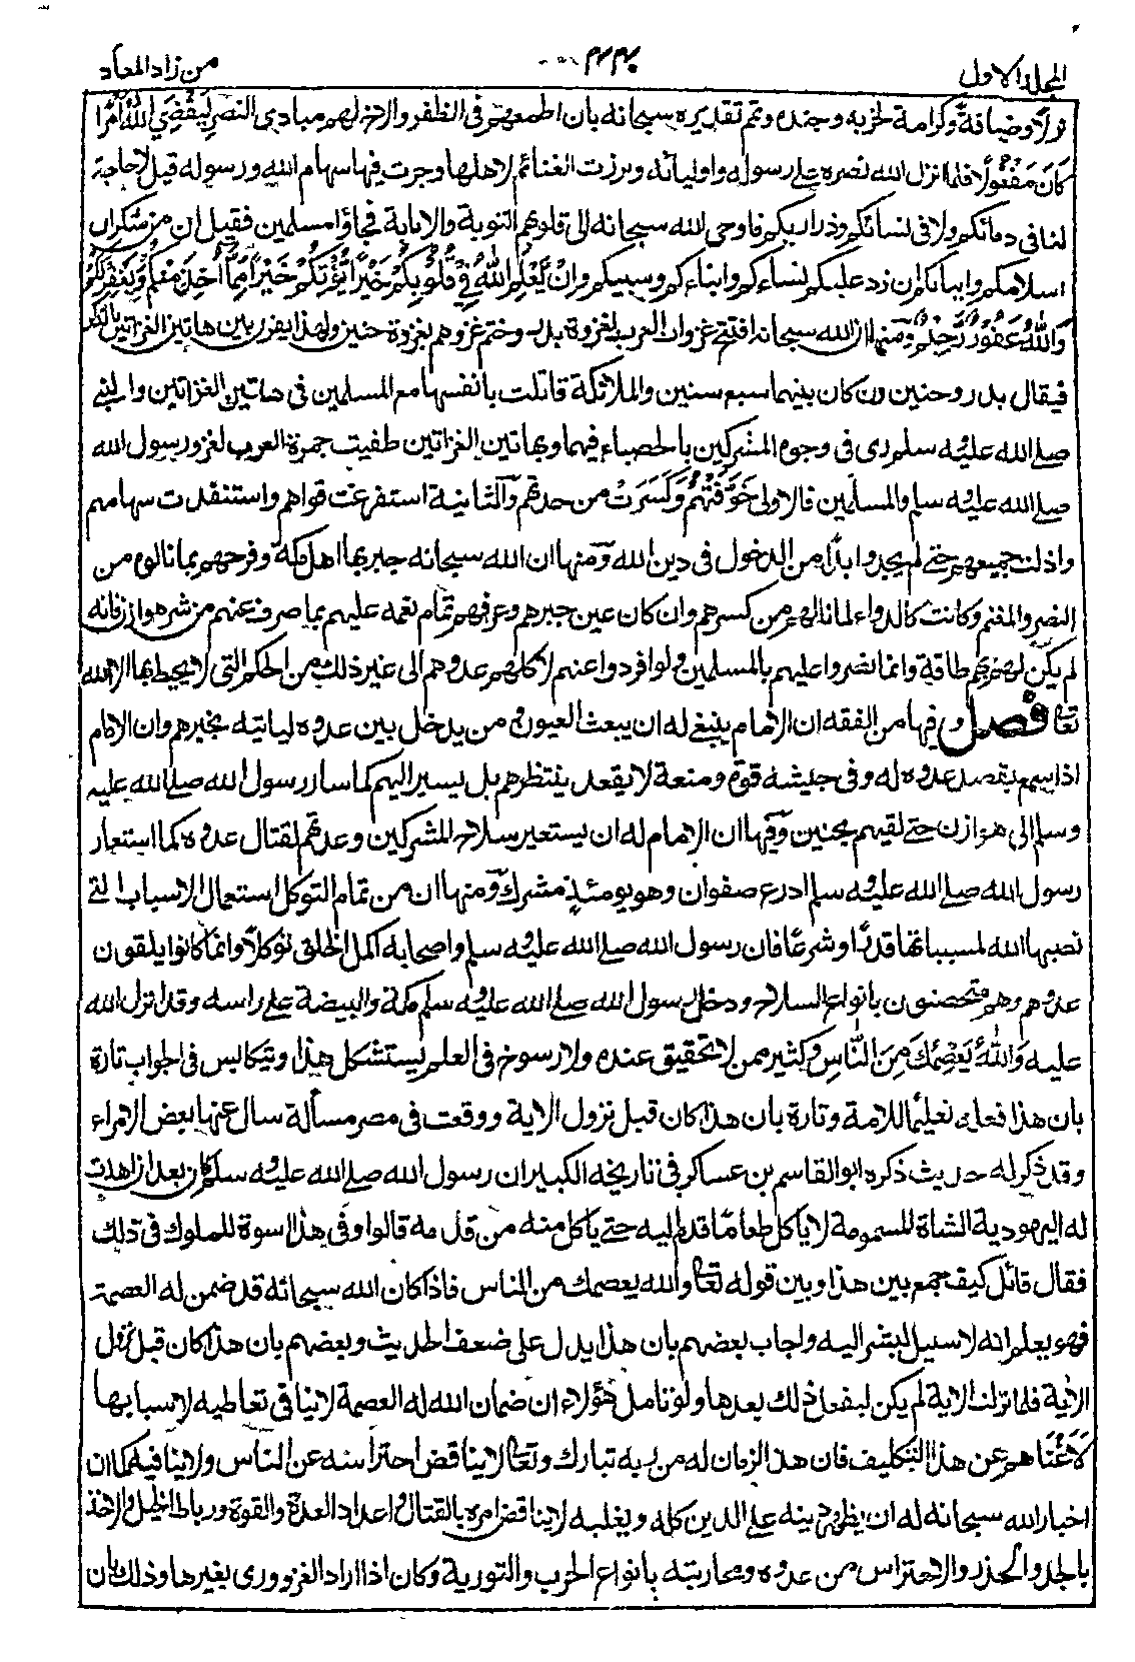 المجلد الاول
٤٤٣
من زاد المعاد
نزلا وضيافة وكرامة لحزبه وجنده وتمم تقديره سبحانه بان اطمعهم في الظفر والاح لهم مبادى النصر لِيَقْضِيَ اللهُ اَمْرًا
كَانَ مَفْعُولًا فلما انزل الله نصره على رسوله واوليائه وبرزت الغنائم لاهلها وجرت فيها سهام الله ورسوله قيل لا حاجة
لنا في دمائكم ولا في نسائكم وذراريكم فاوحى الله سبحانه الى قلوبهم التوبة والانابة فجاؤا مسلمين فقيل ان من شكران
اسلامكم واتيانكم ان نرد عليكم نساءكم وابناءكم وسبيكم وَاِنْ يَّعْلَمِ اللهُ فِيْ قُلُوْبِكُمْ خَيْرًا يُّؤْتِكُمْ خَيْرًا مِّمَّا اُخِذَ مِنْكُمْ وَيَغْفِرْ لَكُمْ
وَاللهُ غَفُوْرٌ رَّحِيْمٌ ومنها ان الله سبحانه افتتح غزوات العرب بغزوة بدر وختم غزوهم بغزوة حنين ولهذا يقرن بين هاتين الغزاتين بالذكر
فيقال بدر وحنين وان كان بينهما سبع سنين والملائكة قاتلت بانفسها مع المسلمين في هاتين الغزاتين والنبي
صلى الله عليه وسلم رمى في وجوه المشركين بالحصباء فيهما وبهاتين الغزاتين طفيت جمرة العرب لغزو رسول الله
صلى الله عليه وسلم والمسلمين فالاولى خَوَّفَتْهُم وَكَسَرَتْ من حدهم والثانية استفرغت قواهم واستنفدت سهامهم
واذلت جميعهم حتى لم يجدوا بدا من الدخول في دين الله ومنها ان الله سبحانه جبر بها اهل مكة وفرحهم بما نالوه من
النصر والمغنم وكانت كالدواء لما نالهم من كسرهم وان كان عين جبرهم وعرفهم تمام نعمه عليهم بما صرف عنهم من شر هوازن فانه
لم يكن لهم بهم طاقة وانما نصروا عليهم بالمسلمين ولو افردوا عنهم لاكلهم عدوهم الى غير ذلك من الحكم التي لا يحيط بها الا الله
تعالى فصل وفيها من الفقه ان الامام ينبغي له ان يبعث العيون ومن يدخل بين عدوه لياتيه بخبرهم وان الامام
اذا سمع بقصد عدوه له وفي جيشه قوة ومنعة لا يقعد ينتظرهم بل يسير اليهم كما سار رسول الله صلى الله عليه
وسلم الى هوازن حتى لقيهم بحنين وفيها ان الامام له ان يستعير سلاح المشركين وعدتهم لقتال عدوه كما استعار
رسول الله صلى الله عليه وسلم ادرع صفوان وهو يومئذ مشرك ومنها ان من تمام التوكل استعمال الاسباب التي
نصبها الله لمسبباتها قدرًا وشرعًا فان رسول الله صلى الله عليه وسلم واصحابه اكمل الخلق توكلا وانما كانوا يلقون
عدوهم وهم متحصنون بانواع السلاح ودخل رسول الله صلى الله عليه وسلم مكة والبيضة على راسه وقد انزل الله
عليه وَاللهُ يَعْصِمُكَ مِنَ النَّاسِ وكثير ممن لا تحقيق عنده ولا رسوخ في العلم يستشكل هذا ويتكايس في الجواب تارة
بان هذا فعله تعليمًا للامة وتارة بان هذا كان قبل نزول الاية ووقعت في مصر مسألة سال عنها بعض الامراء
وقد ذكر له حديث ذكره ابو القاسم بن عساكر في تاريخه الكبير ان رسول الله صلى الله عليه وسلم كان بعد ان اهدت
له اليهودية الشاة المسمومة لا ياكل طعامًا قدم اليه حتى ياكل منه من قدمه قالوا وفي هذا اسوة للملوك في ذلك
فقال قائل كيف يجمع بين هذا وبين قوله تعالى والله يعصمك من الناس فاذا كان الله سبحانه قد ضمن له العصمة
فهو يعلم انه لا سبيل لبشر اليه واجاب بعضهم بان هذا يدل على ضعف الحديث وبعضهم بان هذا كان قبل نزول
الاية فلما نزلت الاية لم يكن ليفعل ذلك بعدها ولو تامل هؤلاء ان ضمان الله له العصمة لا ينافي تعاطيه لاسبابها
لَاَغْنَاهم عن هذا التكليف فان هذا الزمان له من ربه تبارك وتعالى لا يناقض احتراسه عن الناس ولا ينافيه كما ان
اخبار الله سبحانه له ان يظهر دينه على الدين كله ويغلبه لا يناقض امره بالقتال واعداد العدة والقوة ورباط الخيل والاخذ
بالجد والحذر والاحتراس من عدوه ومحاربته بانواع الحرب والتورية وكان اذا اراد الغزو ورى بغيرها وذلك بان